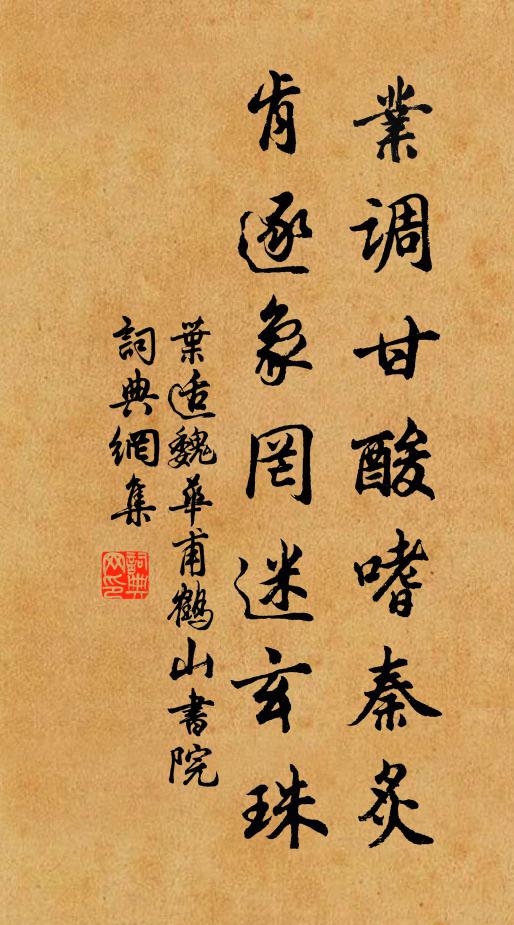 業調甘酸嗜秦炙
肯逐象罔迷玄珠
葉适魏華甫鶴山書院
詞典網集
詞典
网印